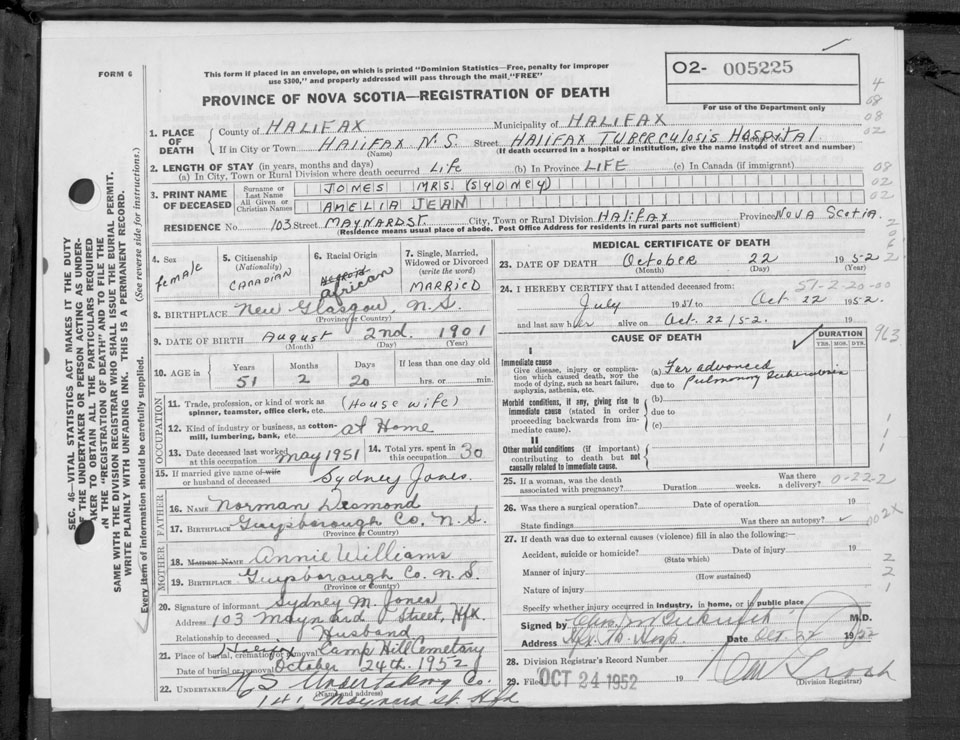 FORM 6
This form if placed in an envelope, on which is printed "Dominion Statistics—Free, penalty for improper
use $300," and properly addressed will pass through the mail "FREE"
O2- 005225
For use of the Department only
PROVINCE OF NOVA SCOTIA—REGISTRATION OF DEATH
1. PLACE OF DEATH { County of HALIFAX Municipality of HALIFAX
If in City or Town HALIFAX N.S. Street HALIFAX TUBERCULOSIS HOSPITAL
(Name) (If death occurred in a hospital or institution, give the name instead of street and number)
2. LENGTH OF STAY (in years, months and days)
(a) In City, Town or Rural Division where death occurred Life (b) In Province LIFE (c) In Canada (if immigrant)
3. PRINT NAME OF DECEASED { Surname or Last Name JONES MRS (SYDNEY)
All Given or Christian Names AMELIA JEAN
RESIDENCE No. 103 Street MAYNARD ST. City, Town or Rural Division Halifax Province Nova Scotia.
(Residence means usual place of abode. Post Office Address for residents in rural parts not sufficient)
4. Sex female
5. Citizenship (Nationality) CANADIAN
6. Racial Origin african
7. Single, Married, Widowed or Divorced (write the word) MARRIED
8. BIRTHPLACE New Glasgow, N.S.
(Province or Country)
9. DATE OF BIRTH August 2nd. 1901
(Month) (Day) (Year)
10. AGE in { Years 51 Months 2 Days 20 If less than one day old hrs. or min.
OCCUPATION
11. Trade, profession, or kind of work as spinner, teamster, office clerk, etc. (House wife)
12. Kind of industry or business, as cotton-mill, lumbering, bank, etc. at Home
13. Date deceased last worked at this occupation May 1951 14. Total yrs. spent in this occupation 30
15. If married give name of wife or husband of deceased Sydney Jones.
FATHER
16. NAME Norman Desmond
17. BIRTHPLACE Guysborough Co. N.S.
(Province or Country)
MOTHER
18. MAIDEN NAME Annie Williams
19. BIRTHPLACE Guysborough Co. N.S.
(Province or Country)
20. Signature of informant Sydney M. Jones
Address 103 Maynard Street, Hfx
Relationship to deceased Husband
21. Place of burial, cremation or removal Halifax Camp Hill Cemetary
Date of burial or removal October 24th. 1952
22. UNDERTAKER N S Undertaking Co.
(Name and address)
141 Maynard St. Hfx
MEDICAL CERTIFICATE OF DEATH
23. DATE OF DEATH October 22 1952
(Month) (Day) (Year)
57-2-20-00
24. I HEREBY CERTIFY that I attended deceased from:
July 1951 to Oct 22 1952.
and last saw her alive on Oct. 22 / 52. 19
CAUSE OF DEATH
DURATION
YRS. MOS. DYS.
I
Immediate cause
Give disease, injury or complication which caused death, not the mode of dying, such as heart failure, asphyxia, asthenia, etc.
(a) Far advanced
due to pulmonary tuberculosis
Morbid conditions, if any, giving rise to immediate cause (stated in order proceeding backwards from immediate cause).
(b)
due to
(c)
II
Other morbid conditions (if important) contributing to death but not causally related to immediate cause.
25. If a woman, was the death associated with pregnancy? Duration weeks. Was there a delivery? 0-22-2
26. Was there a surgical operation? Date of operation 19
State findings Was there an autopsy?
27. If death was due to external causes (violence) fill in also the following:
Accident, suicide or homicide? Date of injury 19
(State which)
Manner of injury
(How sustained)
Nature of injury
Specify whether injury occurred in industry, in home, or in public place
Signed by M.D.
Address Hfx. Tb. Hosp Date Oct. 22 1952
28. Division Registrar's Record Number
29. Filed OCT 24 1952 19
(Division Registrar)
4
08
08
02
08
02
02
963
1
1
1
002X
2
2
1
SEC. 46—VITAL STATISTICS ACT MAKES IT THE DUTY
OF THE UNDERTAKER OR PERSON ACTING AS UNDER-
TAKER TO OBTAIN ALL THE PARTICULARS REQUIRED
IN THE "REGISTRATION OF DEATH" AND TO FILE THE
SAME WITH THE DIVISION REGISTRAR WHO SHALL ISSUE THE BURIAL PERMIT.
WRITE PLAINLY WITH UNFADING INK. THIS IS A PERMANENT RECORD.
Every item of information should be carefully supplied. (See reverse side for instructions.)